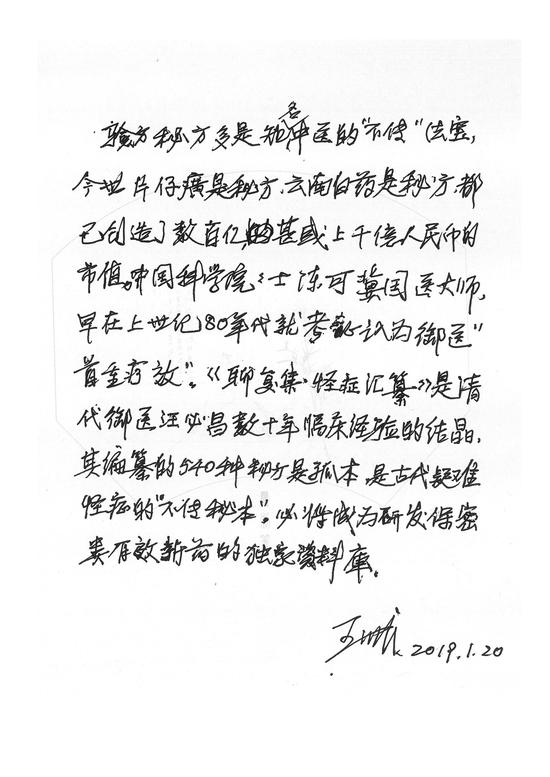 验方秘方多是知名中医的“不传”法宝,
今世片仔癀是秘方、云南白药是秘方,都
已创造了数百亿的甚或上千亿人民币的
市值。中国科学院院士陈可冀国医大师,
早在上世纪80年代就考 认为御医“
首重疗效”。《聊复集·怪症汇纂》是清
代御医汪必昌数十年临床经验的结晶,
其编纂的540种秘方是孤本,是古代疑难
怪症的“不传秘本”。必将成为研发保密
类有效新药的独家资料库。
2019.1.20